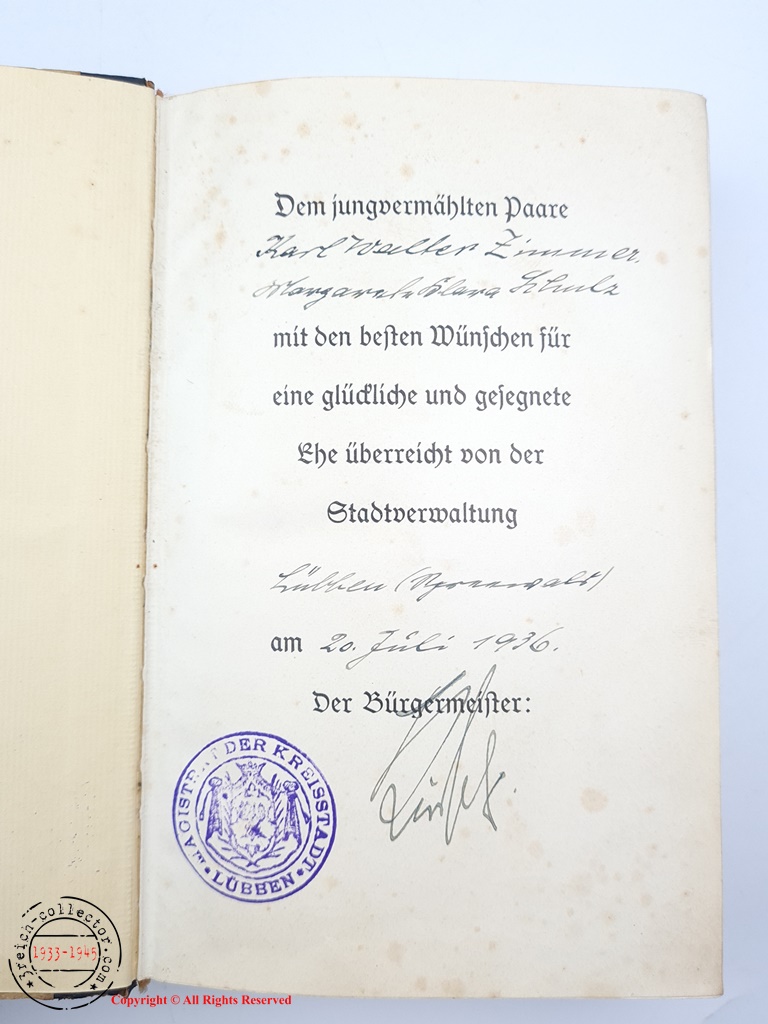 Dem jungvermählten Paare
Karl Walter Zimmer,
Margarete Klara Schulz
mit den besten Wünschen für
eine glückliche und gesegnete
Ehe überreicht von der
Stadtverwaltung
Lübben (Spreewald)
am 20. Juli 1936.
Der Bürgermeister:
MAGISTRAT DER KREISSTADT
• LÜBBEN •
3reich-collector.com
1933-1945
Copyright © All Rights Reserved